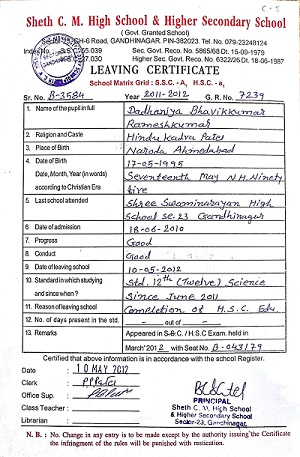 C-5
Sheth C. M. High School & Higher Secondary School
( Govt. Granted School )
GH-6 Road, GANDHINAGAR, PIN-382023. Tel. No. 079-23248124
Index No. : S.S.C. 65.039 Sec. Govt. Reco. No. 5865/68 Dt. 15-09-1979
H.S.C. 27.030 Higher Sec. Govt. Reco. No. 6322/26 Dt. 18-06-1987
LEAVING CERTIFICATE
School Matrix Grid : S.S.C. - A, H.S.C. - B,
Sr. No. B-3584 Year 2011-2012 G. R. No. 7239
1. Name of the pupil in full Dadhaniya Bhavikkumar
Rameshkumar
2. Religion and Caste Hindu Kadva Patel
3. Place of Birth Naroda Ahmedabad
4. Date of Birth 17-05-1995
Date, Month, Year (in words) Seventeenth May N.H. Ninety
according to Christian Era five
5. Last school attended Shree Swaminarayan High
School se.23 Gandhinagar
6. Date of admission 18-06-2010
7. Progress Good
8. Conduct Good
9. Date of leaving school 10-05-2012
10. Standard in which studying Std. 12th (Twelve) Science
and since when ? Since June 2011
11. Reason of leaving School Completion of H.S.C. Edu.
12. No. of days present in the std. — out of —
13. Remarks Appeared in S.S.C. / H.S.C Exam. held in
March' 2012 with Seat No. B-043179
Certified that above information is in accordance with the school Register.
Date : 10 MAY 2012
Clerk :
Office Sup. :
Class Teacher :
Librarian :
PRINCIPAL
Sheth C. M. High School
& Higher Secondary School
Sector-23, Gandhinagar.
N. B. : No. Change in any entry is to be made except by the authority issuing the Certificate
the infringment of the rules will be punished with restication.